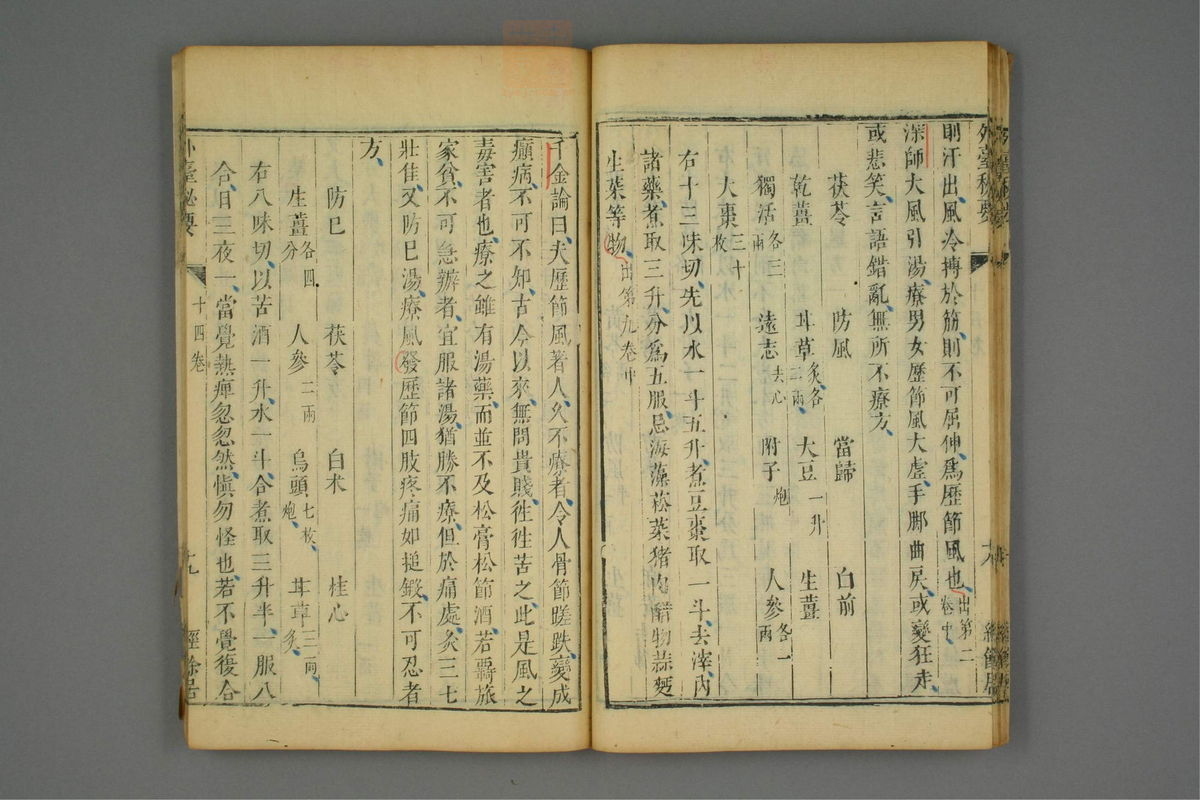 外臺秘要
則汗出風冷搏於筋則不可屈伸爲歷節風也出第二卷中
深師大風引湯療男女歷節風大虛手脚曲戾或變狂走
或悲笑言語錯亂無所不療方
茯苓 防風 當歸 白前
乾薑 甘草炙各三兩 大豆一升 生薑
獨活各三兩 遠志去心 附子炮 人參各一兩
大棗三十枚
右十三味切先以水一斗五升煮豆棗取一斗去滓內
諸藥煮取三升分爲五服忌海藻菘菜猪肉醋物蒜麪
生菜等物出第九卷中
千金論曰夫歷節風著人久不療者令人骨節蹉跌變成
癲病不可不知古今以來無問貴賤徃徃苦之此是風之
毒害者也療之雖有湯藥而並不及松膏松節酒若羇旅
家貧不可急辦者宜服諸湯猶勝不療但於痛處灸三七
壯佳又防巳湯療風發歷節四肢疼痛如搥鍛不可忍者
方
防巳 茯苓 白术 桂心
生薑各四分 人參二兩 烏頭七枚炮 甘草三兩炙
右八味切以苦酒一升水一斗合煮取三升半一服八
合日三夜一當覺熱痺忽忽然愼勿怪也若不覺復合
外臺秘要 十四卷 十九 經餘居